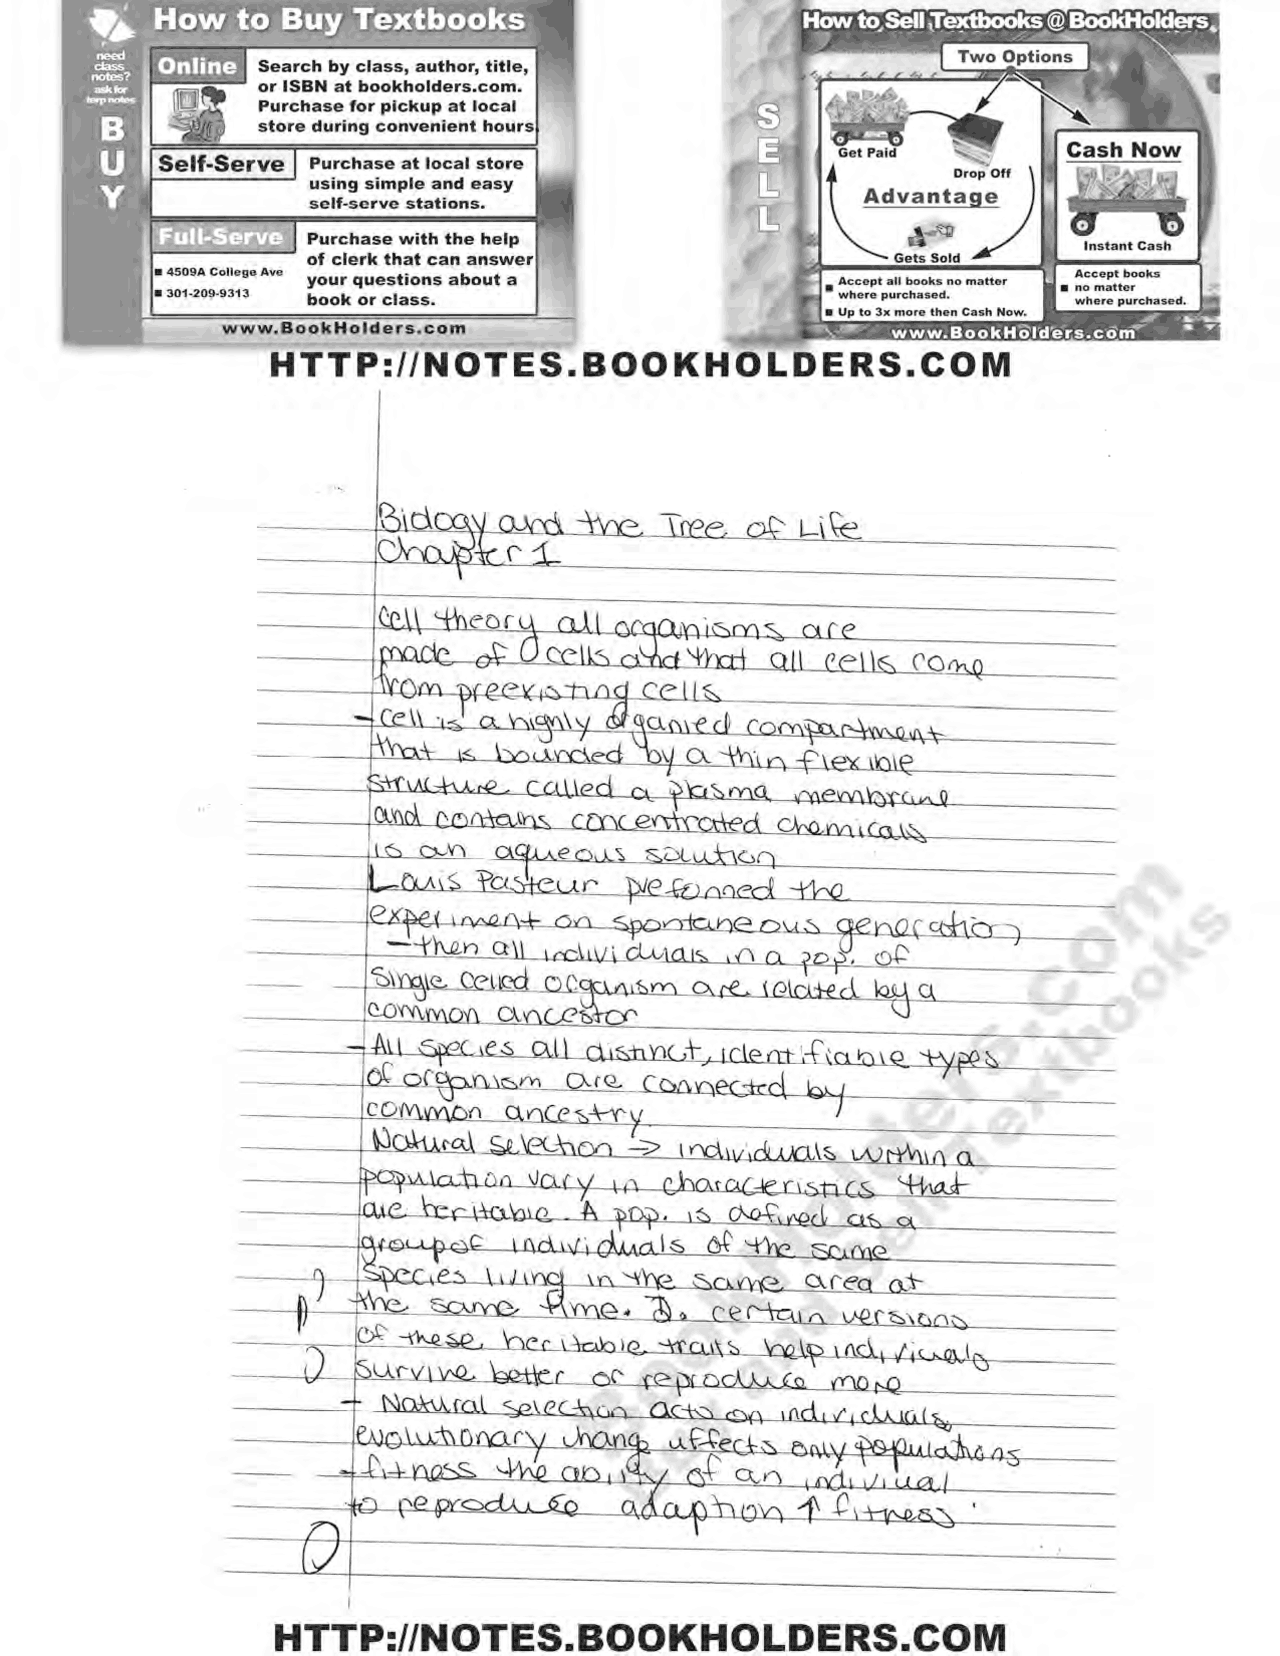 How to Buy Textbooks
need
class
notes?
ask for
terp notes
BUY
Online
Search by class, author, title,
or ISBN at bookholders.com.
Purchase for pickup at local
store during convenient hours.
Self-Serve
Purchase at local store
using simple and easy
self-serve stations.
Full-Serve
■ 4509A College Ave
■ 301-209-9313
Purchase with the help
of clerk that can answer
your questions about a
book or class.
www.BookHolders.com
How to Sell Textbooks @ BookHolders
SELL
Two Options
Get Paid
Drop Off
Advantage
Gets Sold
■ Accept all books no matter
where purchased.
■ Up to 3x more then Cash Now.
Cash Now
Instant Cash
Accept books
■ no matter
where purchased.
www.BookHolders.com
HTTP://NOTES.BOOKHOLDERS.COM
Biology and the Tree of Life
Chapter 1
Cell theory all organisms are
made of cells and that all cells come
from preexisting cells
- Cell is a highly organied compartment
that is bounded by a thin flexible
structure called a plasma membrane
and contains concentrated chemicals
is an aqueous solution
Louis Pasteur preformed the
experiment on spontaneous generation
- then all individuals in a pop. of
single celled organism are related by a
common ancestor
- All species all distinct, identifiable types
of organism are connected by
common ancestry.
Natural selection → individuals within a
population vary in characteristics that
are heritable. A pop. is defined as a
group of individuals of the same
species living in the same area at
the same time. 2. certain versions
of these heritable traits help individuals
survive better or reproduce more
- Natural selection acts on individuals,
evolutionary change affects only populations
- fitness the ability of an indiviual
to reproduce adaption ↑ fitness
BookHolders.com
Buy and Sell Textbooks
HTTP://NOTES.BOOKHOLDERS.COM